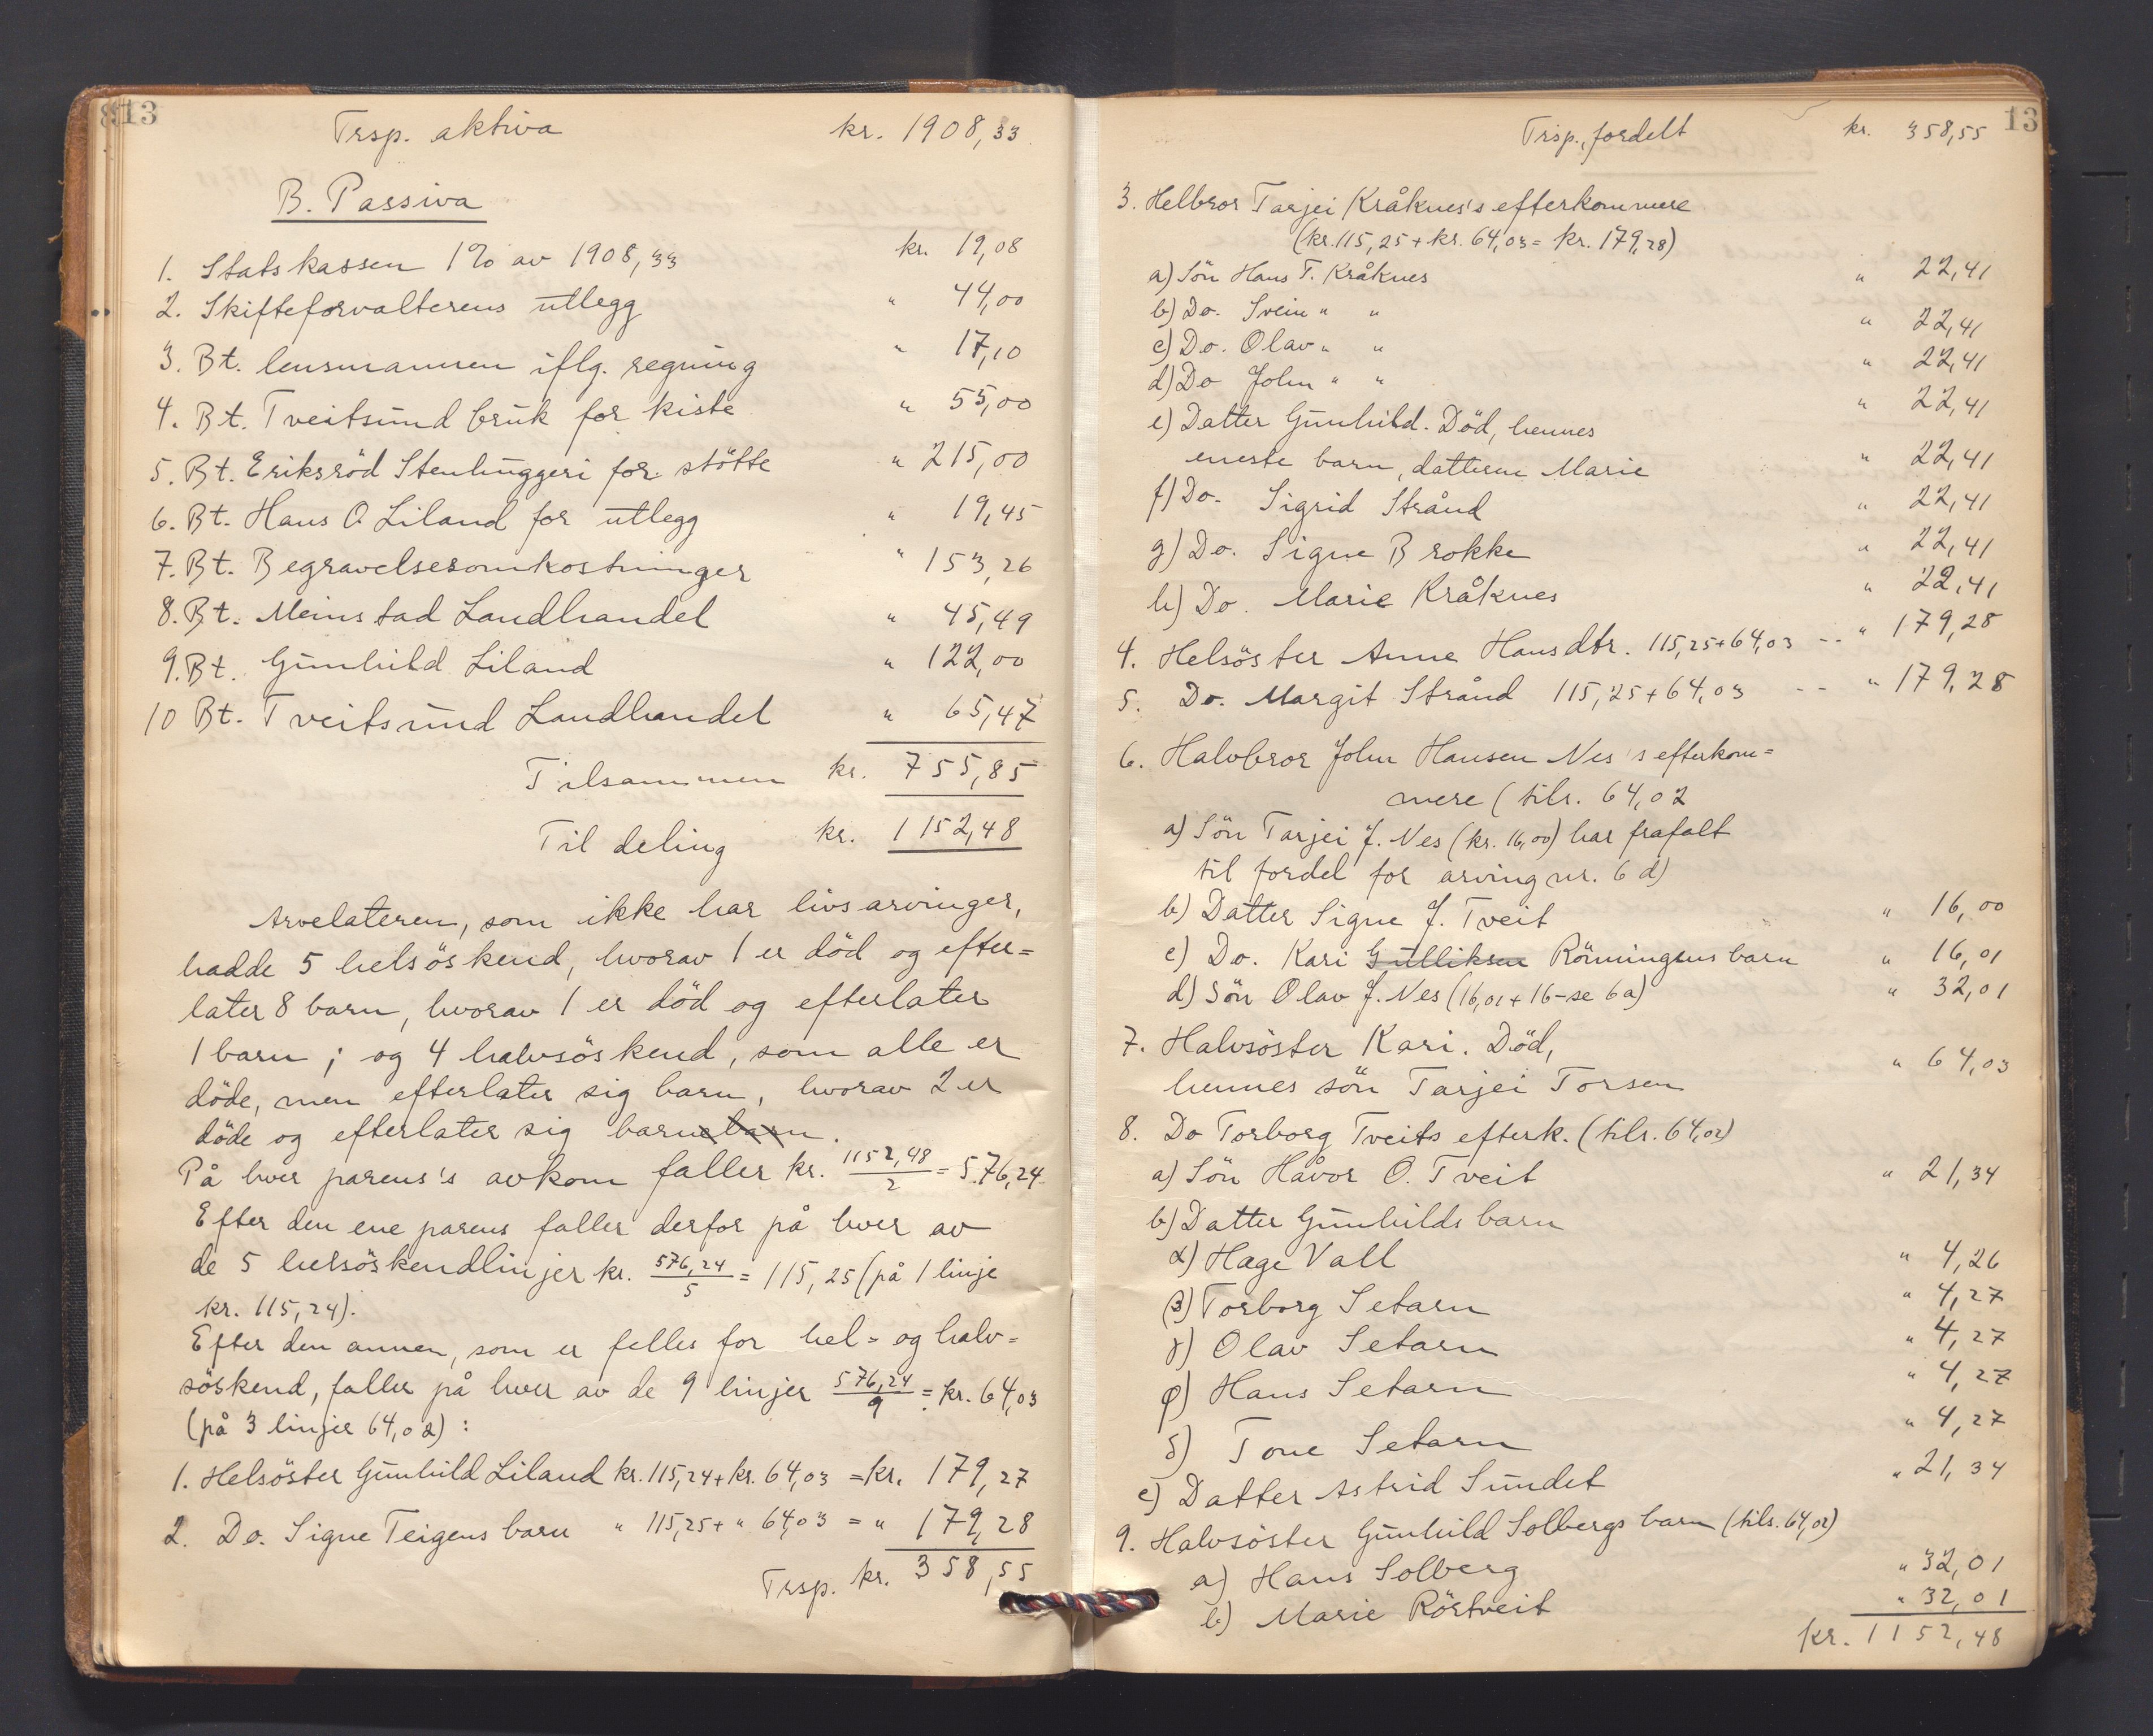 13
Trsp. aktiva kr. 1908,33
B. Passiva
1. Statskassen 1% av 1908,33 kr. 19,08
2. Skifteforvalterens utlegg " 44,00
3. Bt. lensmannen iflg. regning " 17,10
4. Bt. Tveitsund bruk for kiste " 55,00
5. Bt. Eriksröd Stenhuggeri for stötte " 215,00
6. Bt. Hans O. Liland for utlegg " 19,45
7. Bt. Begravelsesomkostninger " 153,26
8. Bt. Meinstad Landhandel " 45,49
9. Bt. Gunhild Liland " 122,00
10 Bt. Tveitsund Landhandel " 65,47
Tilsammen kr. 755,85
Til deling kr. 1152,48
Arvelateren, som ikke har livsarvinger,
hadde 5 helsöskend, hvorav 1 er död og efter=
later 8 barn, hvorav 1 er död og efterlater
1 barn; og 4 halvsöskend, som alle er
döde, men efterlater sig barn, hvorav 2 er
döde og efterlater sig barnebarn.
På hver parens's avkom faller kr. 1152,48/2 = 576,24
Efter den ene parens faller derfor på hver av
de 5 helsöskendlinjer kr. 576,24/5 = 115,25 (på 1 linje
kr. 115,24).
Efter den annen, som er felles for hel- og halv-
söskend, faller på hver av de 9 linjer 576,24/9 = kr. 64,03
(på 3 linjer 64,02):
1. Helsöster Gunhild Liland kr. 115,24 + kr. 64,03 = kr. 179,27
2. Do. Signe Teigens barn " 115,25 + " 64,03 = " 179,28
Trsp. kr. 358,55
13
Trsp., fordelt kr. 358,55
3. Helbror Tarjei Kråknes's efterkommere
(kr. 115,25 + kr. 64,03 = kr. 179,28)
a) Sön Hans T. Kråknes " 22,41
b) Do. Svein " " " 22,41
c) Do. Olav " " " 22,41
d) Do John " " " 22,41
e) Datter Gunhild. Död, hennes
eneste barn, datteren Marie " 22,41
f) Do. Sigrid Strånd " 22,41
g) Do. Signe Brokke " 22,41
h) Do. Marie Kråknes " 22,41
4. Helsöster Anne Hansdtr. 115,25+64,03 -- " 179,28
5. Do. Margit Strånd 115,25+64,03 -- " 179,28
6. Halvbror John Hansen Nes's efterkom=
mere (tils. 64,02
a) Sön Tarjei J. Nes (kr. 16,00) har frafalt
til fordel for arving nr. 6 d)
b) Datter Signe J. Tveit " 16,00
c) Do. Kari Gulliksen Rönningens barn " 16,01
d) Sön Olav J. Nes (16,01 + 16 - se 6a) " 32,01
7. Halvsöster Kari. Död,
hennes sön Tarjei Torsen " 64,03
8. Do Torborg Tveits efterk. (tils. 64,02)
a) Sön Håvor O. Tveit " 21,34
b) Datter Gunhilds barn
α) Hæge Vall " 4,26
β) Torborg Setarn " 4,27
γ) Olav Setarn " 4,27
φ) Hans Setarn " 4,27
δ) Tone Setarn " 4,27
c) Datter Astrid Sundet " 21,34
9. Halvsöster Gunhild Solbergs barn (tils. 64,02)
a) Hans Solberg " 32,01
b) Marie Rörtveit " 32,01
kr. 1152,48